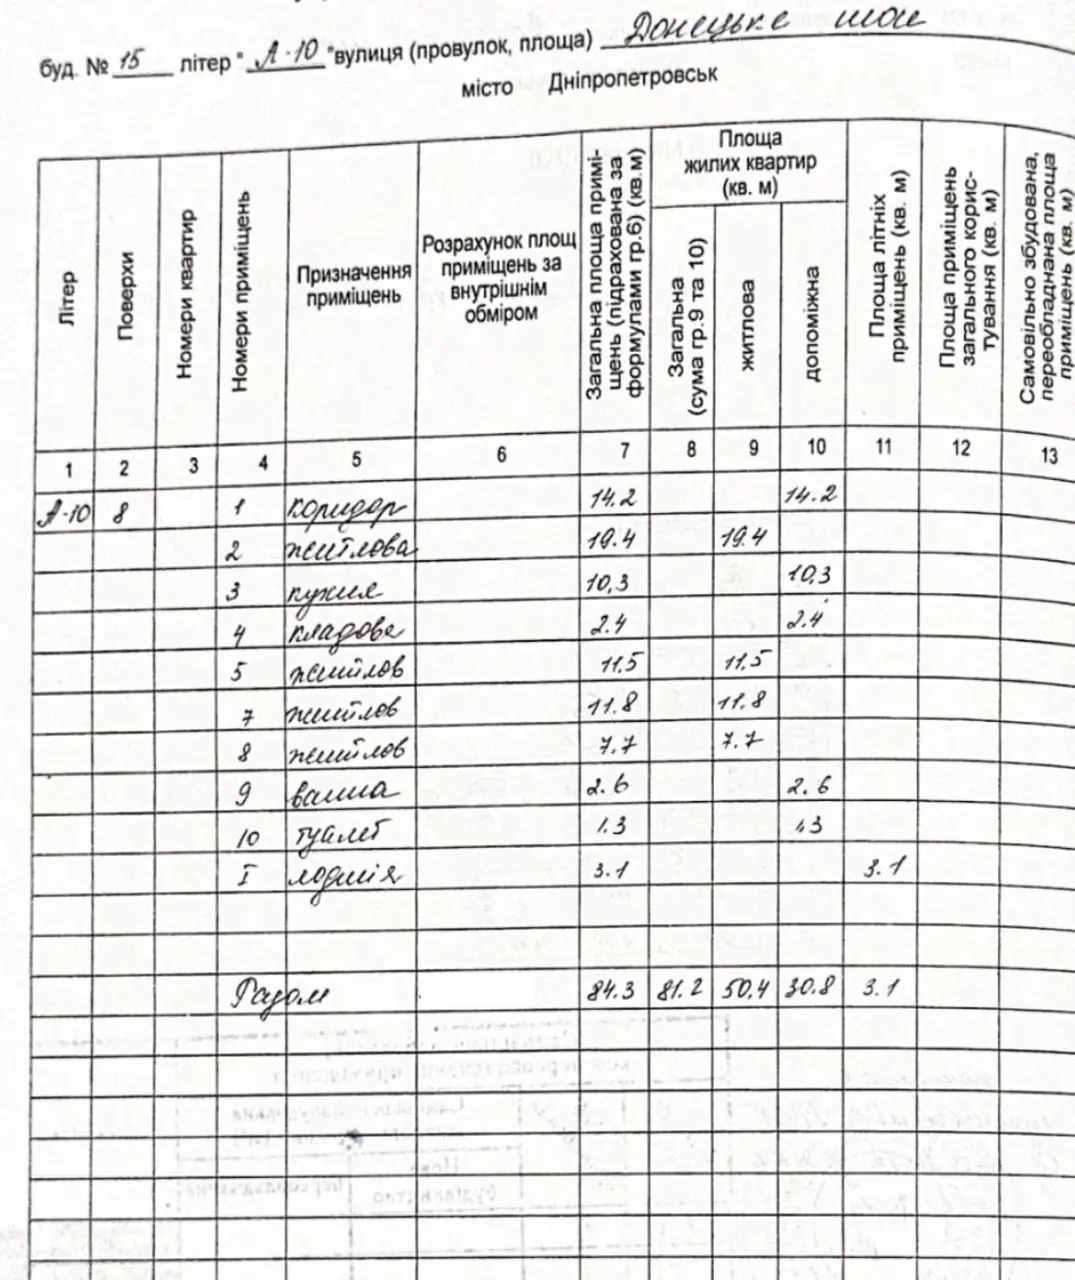 буд. № 15 літер " А-10 " вулиця (провулок, площа) Донецьке шосе
місто Дніпропетровськ
Літер
Поверхи
Номери квартир
Номери приміщень
Призначення
приміщень
Розрахунок площ
приміщень за
внутрішнім
обміром
Загальна площа примі-
щень (підрахована за
формулами гр.6) (кв.м)
Площа
жилих квартир
(кв. м)
Загальна
(сума гр.9 та 10)
житлова
допоміжна
Площа літніх
приміщень (кв. м)
Площа приміщень
загального корис-
тування (кв. м)
Самовільно збудована,
переобладнана площа
приміщень (кв. м)
1 2 3 4 5 6 7 8 9 10 11 12 13
А-10 8 1 коридор 14.2 14.2
2 житлова 19.4 19.4
3 кухня 10,3 10,3
4 кладова 2.4 2.4
5 житлов 11.5 11.5
7 житлов 11.8 11.8
8 житлов 7.7 7.7
9 ванна 2.6 2.6
10 туалет 1.3 1.3
I лоджія 3.1 3.1
Разом 84.3 81.2 50.4 30.8 3.1